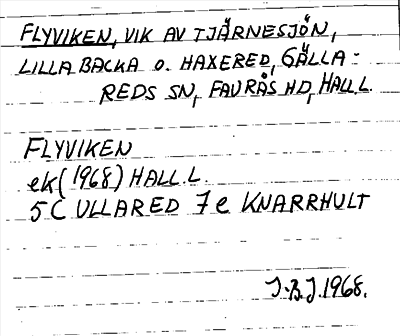 FLYVIKEN, VIK AV TJÄRNESJÖN,
LILLA BACKA O. HAXERED, GÄLLA-
REDS SN, FAURÅS HD, HALL.L.
FLYVIKEN
ek (1968) HALL.L.
5C ULLARED 7e KNARRHULT
J.B.J. 1968.